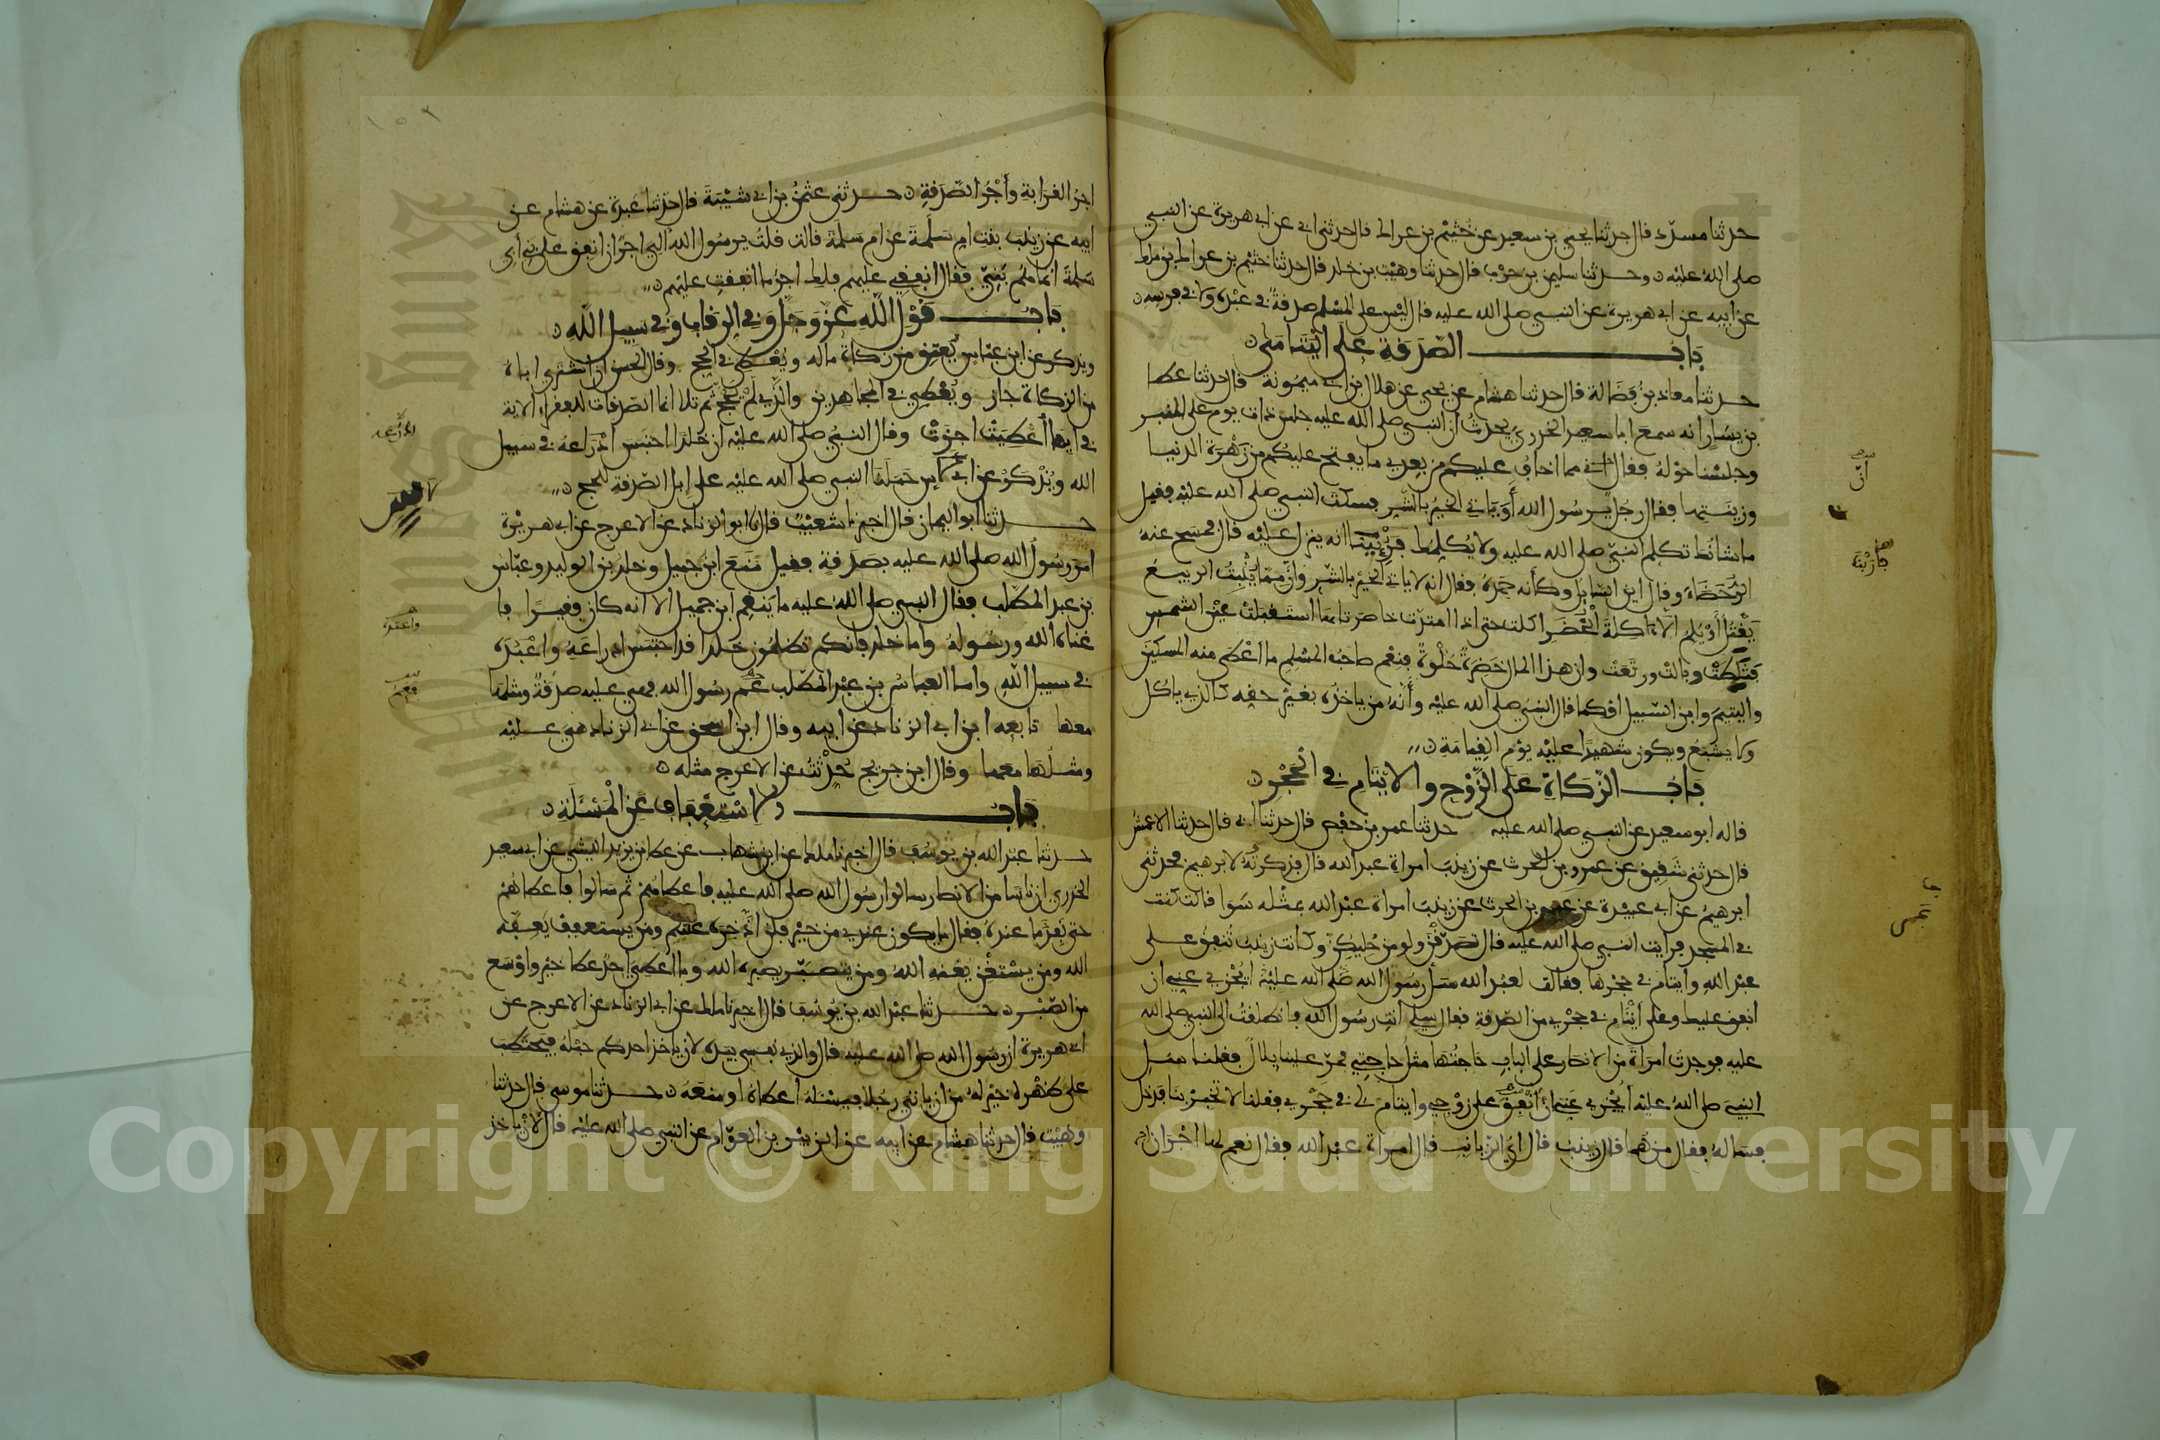 حدثنا مسدد قال حدثنا يحيى بن سعيد عن خثيم بن عراك قال حدثني ابي عن ابي هريرة عن النبي
صلى الله عليه وحدثنا سليمن بن حرب قال حدثنا وهيب بن خلد قال حدثنا خثيم بن عراك بن ملك
عن ابيه عن ابي هريرة عن النبي صلى الله عليه قال ليس على المسلم صدقة في عبده ولا في فرسه
باب الصدقة على اليتامى
حدثنا معاذ بن فضالة قال حدثنا هشام عن يحيى عن هلال بن ابي ميمونة قال حدثنا عطا
بن يسار انه سمع ابا سعيد الخدري يحدث ان النبي صلى الله عليه جلس ذات يوم على المنبر
وجلسنا حوله فقال اني مما اخاف عليكم من بعدي ما يفتح عليكم من زهرة الدنيا
وزينتها فقال رجل يرسول الله أو ياتي الخير بالشر فسكت النبي صلى الله عليه فقيل
ما شانك تكلم النبي صلى الله عليه ولا يكلمك فرئينا انه ينزل عليه قال فمسح عنه
الرحضاء وقال اين السايل وكأنه حمده فقال انه لا ياتي الخير بالشر وان مما ينبت الربيع
يقتل أو يلم الا اكلة الخضرا اكلت حتى اذا امتدت خاصرتاها استقبلت عين الشمس
فثلطت وبالت ورتعت وان هذا المال خضرة حلوة فنعم صاحب المسلم ما اعطى منه المسكين
واليتيم وابن السبيل او كما قال النبي صلى الله عليه وأنه من ياخذه بغير حقه كالذي ياكل
ولا يشبع ويكون شهيدا عليه يوم القيامة
باب الزكاة على الزوج والايتام في الحجر
قاله ابو سعيد عن النبي صلى الله عليه حدثنا عمر بن حفص قال حدثنا ابي قال حدثنا الاعمش
قال حدثني شقيق عن عمرو بن الحرث عن زينب امراة عبد الله قال فذكرته لابرهيم فحدثني
ابرهيم عن ابي عبيدة عن عمرو بن الحرث عن زينب امراة عبد الله بمثله سوا قالت كنت
في المسجد فرايت النبي صلى الله عليه فقال تصدقن ولو من حليكن وكانت زينب تنفق على
عبد الله وايتام في حجرها فقالت لعبد الله سل رسول الله صلى الله عليه ايجزي عني ان
انفق عليك وعلى أيتام في حجري من الصدقة فقال سلي أنت رسول الله فانطلقت الى النبي صلى الله
عليه فوجدت امراة من الانصار على الباب حاجتها مثل حاجتي فمر علينا بلال فقلنا سل
النبي صلى الله عليه أيجزي عني ان أنفق على زوجي وايتام لي في حجري فقلنا لا تخبر بنا فدخل
فساله فقال من هما قال زينب قال اي الزيانب قال امراة عبد الله فقال نعم لها اجران
اجر القرابة وأجر الصدقة حدثني عثمن بن ابي شيبة قال حدثنا عبدة عن هشام عن
ابيه عن زينب بنت ام سلمة عن ام سلمة قالت قلت يرسول الله الي اجر ان انفق على بني أبي
سلمة انما هم بني فقال انفقي عليهم فلك اجر ما انفقت عليهم
باب قول الله عز وجل وفي الرقاب وفي سبيل الله
ويذكر عن ابن عباس يعتق من زكاة ماله ويعطى في الحج وقال الحسن ان اشترى اباه
من الزكاة جاز ويعطي في المجاهدين والذي لم يحج ثم تلا انما الصدقات للفقراء الاية
في ايها أعطيت اجزت وقال النبي صلى الله عليه ان خلدا احتبس ادراعه في سبيل
الله ويذكر عن ابي لاس حملنا النبي صلى الله عليه على ابل الصدقة للحج
حدثنا ابو اليمان قال اخبرنا شعيب قال ابو الزناد عن الاعرج عن ابي هريرة
امر رسول الله صلى الله عليه بصدقة فقيل منع ابن جميل وخلد بن الوليد وعباس
بن عبد المطلب فقال النبي صلى الله عليه ما ينقم ابن جميل الا انه كان فقيرا فا
غناه الله ورسوله واما خلد فانكم تظلمون خلدا قد احتبس ادراعه واعبده
في سبيل الله واما العباس بن عبد المطلب عم رسول الله فهي عليه صدقة ومثلها
معها تابعه ابن ابي الزناد عن ابيه وقال ابن اسحق عن ابي الزناد هي عليه
ومثلها معها وقال ابن جريج حدثت عن الاعرج مثله
باب الاستعفاف عن المسئلة
حدثنا عبد الله بن يوسف قال اخبرنا ملك عن ابن شهاب عن عطا بن يزيد الليثي عن ابي سعيد
الخدري ان ناسا من الانصار سالوا رسول الله صلى الله عليه فاعطاهم ثم سالوا فاعطاهم
حتى نفد ما عنده فقال ما يكون عندي من خير فلن أدخره عنكم ومن يستعفف يعفه
الله ومن يستغن يغنه الله ومن يتصبر يصبره الله وما أعطي احد عطا خير واوسع
من الصبر حدثنا عبد الله بن يوسف قال اخبرنا ملك عن ابي الزناد عن الاعرج عن
ابي هريرة ان رسول الله صلى الله عليه قال والذي نفسي بيده لان ياخذ احدكم حبله فيحتطب
على ظهره خير له من ان ياتي رجلا فيسئله أعطاه او منعه حدثنا موسى قال حدثنا
وهيب قال حدثنا هشام عن ابيه عن الزبير بن العوام عن النبي صلى الله عليه قال لان ياخذ
Copyright © King Saud University